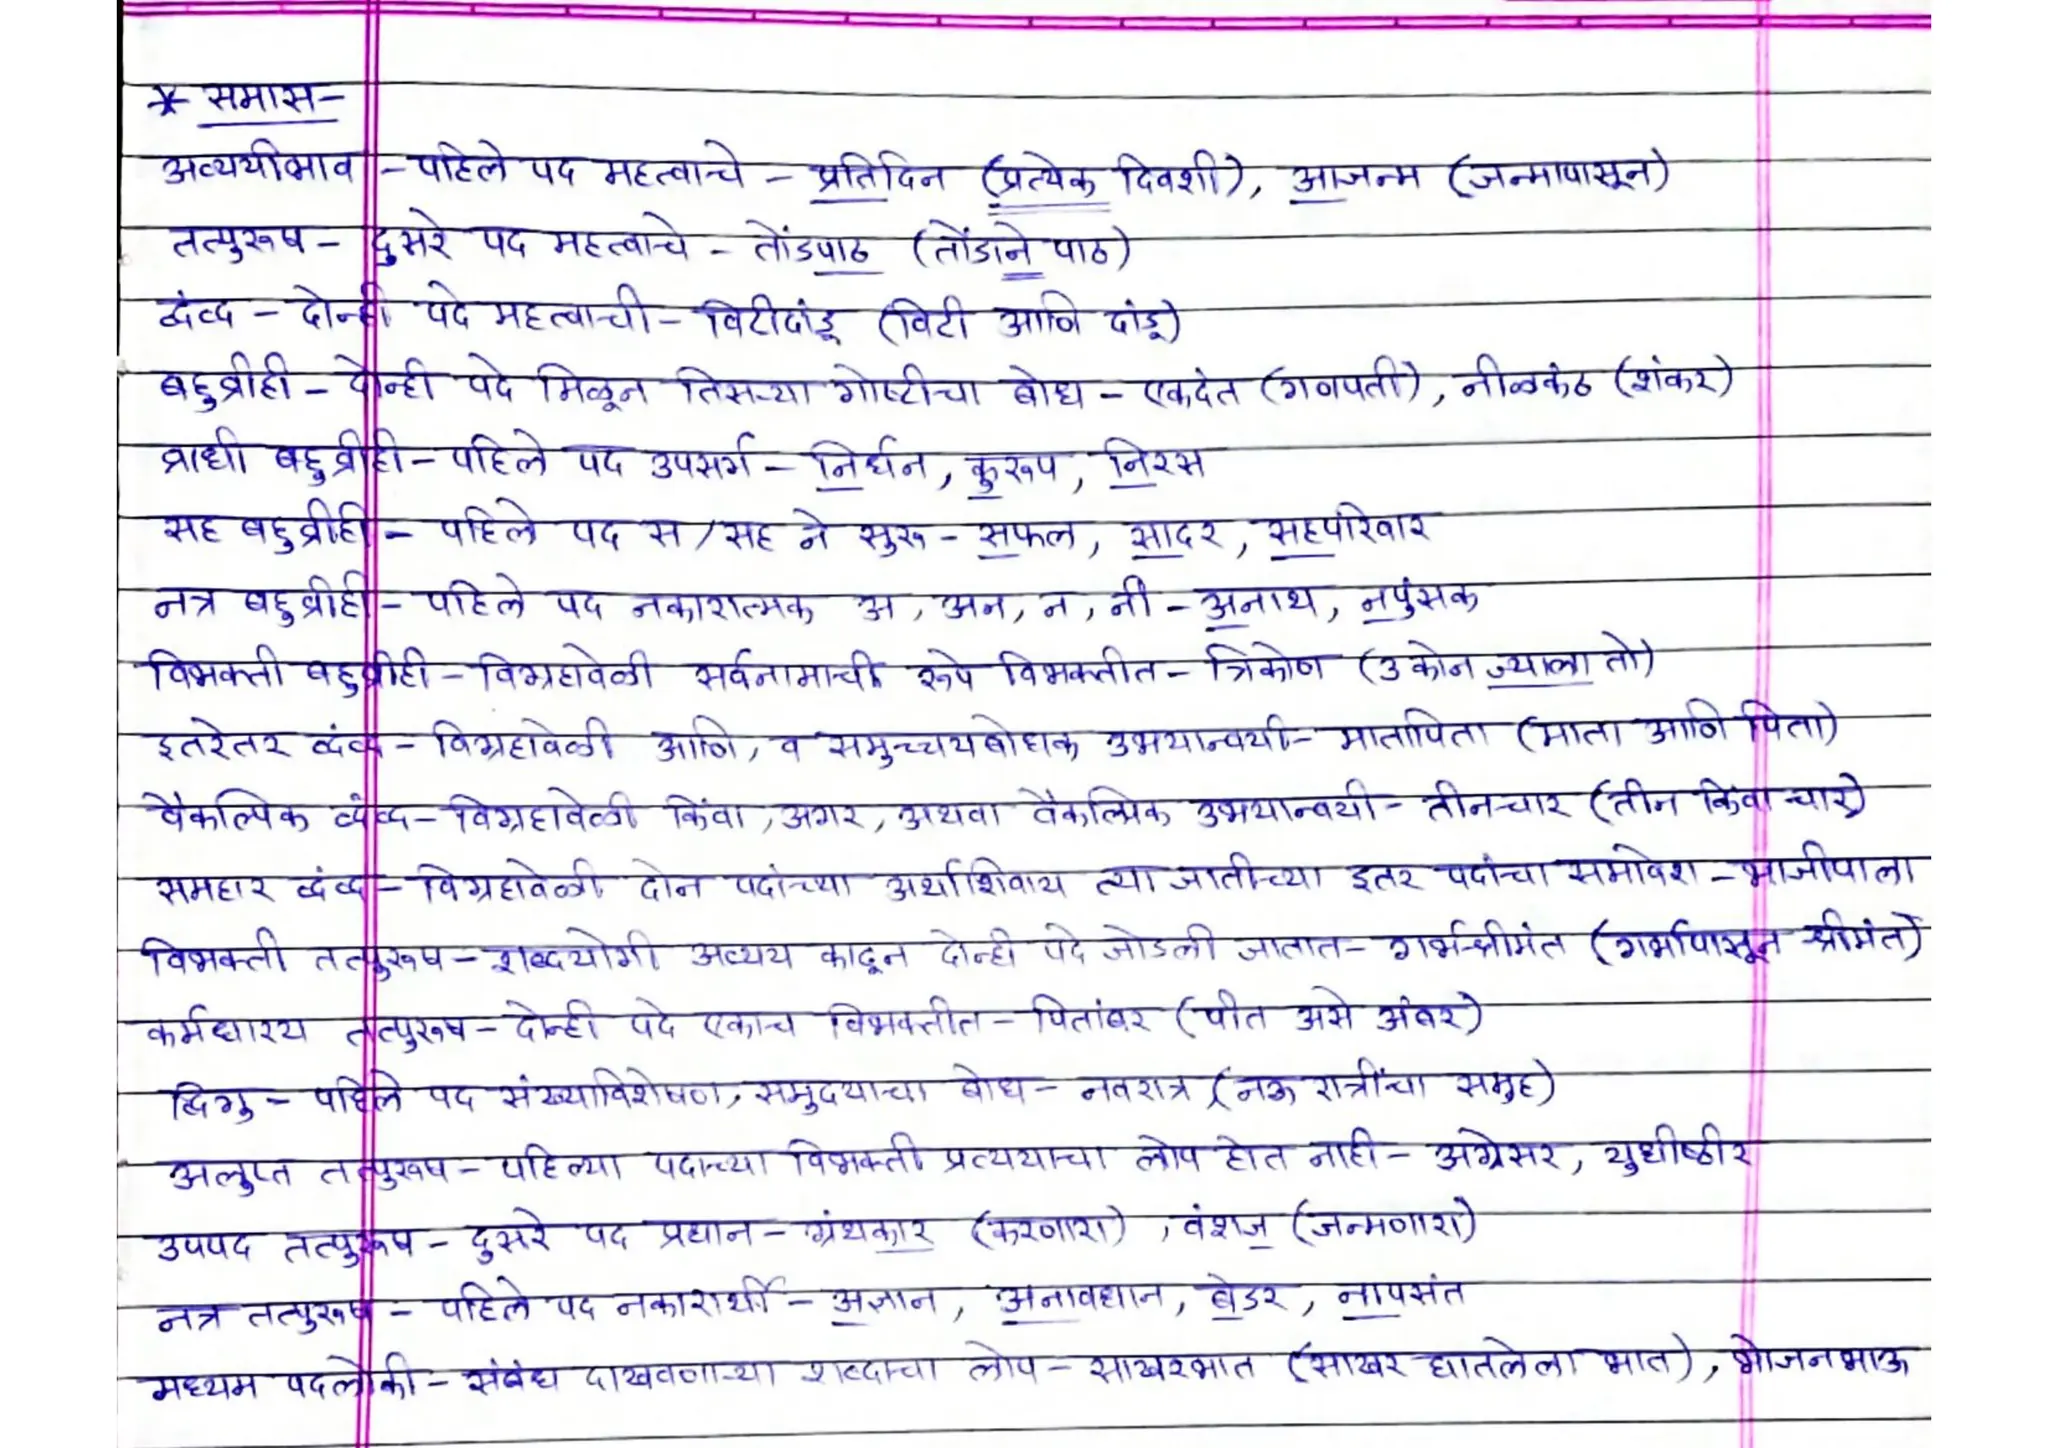 * समास-
अव्ययीभाव - पहिले पद महत्वाचे - प्रतिदिन (प्रत्येक दिवशी), आजन्म (जन्मापासून)
तत्पुरुष - दुसरे पद महत्वाचे - तोंडपाठ (तोंडाने पाठ)
द्वंव्द - दोन्ही पदे महत्वाची - विटीदांडू (विटी आणि दांडू)
बहुव्रीही - दोन्ही पदे मिळून तिसऱ्या गोष्टीचा बोध - एकदंत (गणपती), नीळकंठ (शंकर)
प्राधी बहुव्रीही - पहिले पद उपसर्ग - निर्धन, कुरूप, निरस
सह बहुव्रीही - पहिले पद स/सह ने सुरु - सफल, सादर, सहपरिवार
नत्र बहुव्रीही - पहिले पद नकारात्मक अ, अन, न, नी - अनाथ, नपुंसक
विभक्ती बहुव्रीही - विग्रहावेळी सर्वनामाची रूपे विभक्तीत - त्रिकोण (3 कोन ज्याला तो)
इतरेतर द्वंव्द - विग्रहावेळी आणि, व समुच्चयबोधक उभयान्वयी - मातापिता (माता आणि पिता)
वैकल्पिक द्वंव्द - विग्रहावेळी किंवा, अगर, अथवा वैकल्पिक उभयान्वयी - तीनचार (तीन किंवा चार)
समहार द्वंव्द - विग्रहावेळी दोन पदांच्या अर्थाशिवाय त्या जातीच्या इतर पदांचा समावेश - भाजीपाला
विभक्ती तत्पुरुष - शब्दयोगी अव्यय काढून दोन्ही पदे जोडली जातात - गर्भश्रीमंत (गर्भापासून श्रीमंत)
कर्मधारय तत्पुरुष - दोन्ही पदे एकाच विभक्तीत - पितांबर (पीत असे अंबर)
द्विगु - पहिले पद संख्याविशेषण, समुदयाचा बोध - नवरात्र (नऊ रात्रींचा समुह)
अलुप्त तत्पुरुष - पहिल्या पदाच्या विभक्ती प्रत्ययाचा लोप होत नाही - अग्रेसर, युधीष्ठीर
उपपद तत्पुरुष - दुसरे पद प्रधान - ग्रंथकार (करणारा), वंशज (जन्मणारा)
नत्र तत्पुरुष - पहिले पद नकारार्थी - अज्ञान, अनावधान, बेडर, नापसंत
मध्यम पदलोकी - संबंध दाखवणाऱ्या शब्दाचा लोप - साखरभात (साखर घातलेला भात), भोजनभाऊ